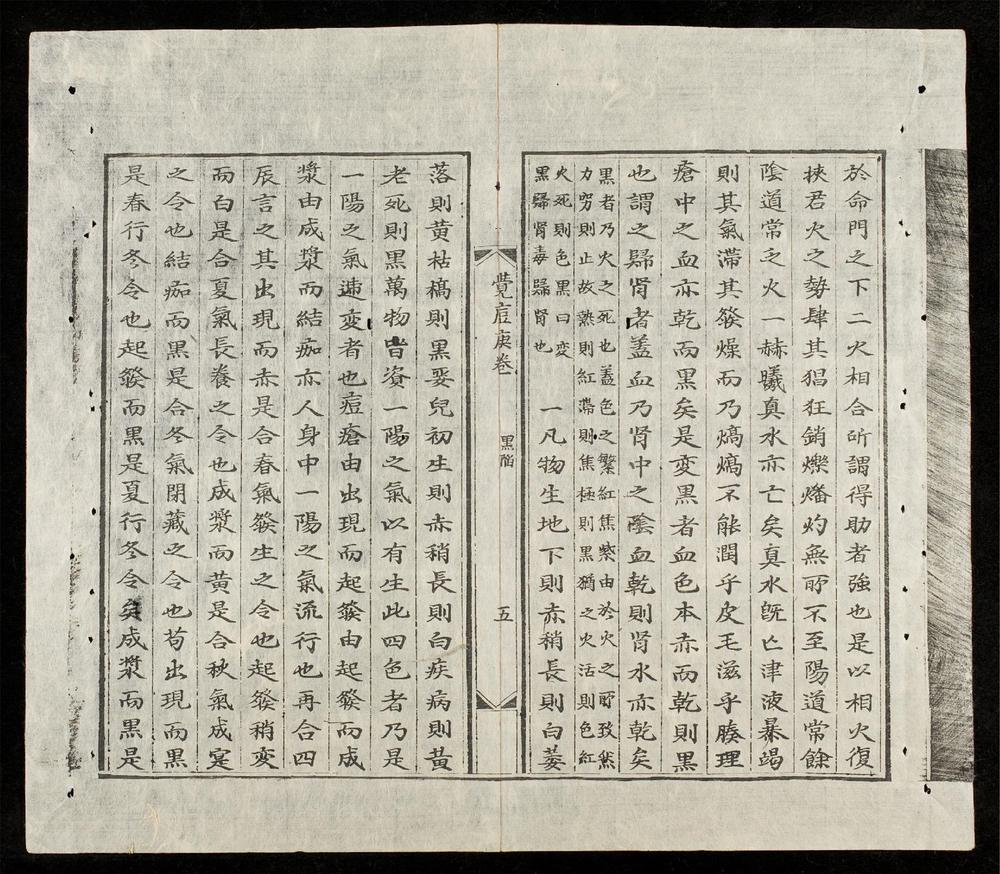 於命門之下二火相合所謂得助者強也是以相火復
挾君火之勢肆其猖狂銷爍燔灼無所不至陽道常餘
陰道常乏火一赫曦真水亦亡矣真水既亡津液暴竭
則其氣滯其發燥而乃熇熇不能潤乎皮毛滋乎腠理
瘡中之血亦乾而黒矣是変黒者血色本赤而乾則黒
也謂之歸腎者盖血乃腎中之陰血乾則腎水亦乾矣
黒者乃火之死也盖色之繁紅焦紫由於火之所致然
力窮則止故熱則紅滯則焦極則黒猶之火活則色紅
火死則色黒曰変
黒歸腎毒歸腎也
一凡物生地下則赤稍長則白萎
覺痘庚卷
黒陷
五
落則黄枯槁則黒嬰兒初生則赤稍長則白疾病則黄
老死則黒萬物皆資一陽之氣以有生此四色者乃是
一陽之氣逓変者也痘瘡由出現而起發由起發而成
漿由成漿而結痂亦人身中一陽之氣流行也再合四
辰言之其出現而赤是合春氣發生之令也起發稍変
而白是合夏氣長養之令也成漿而黄是合秋氣成寔
之令也結痂而黒是合冬氣閉藏之令也苟出現而黒
是春行冬令也起發而黒是夏行冬令矣成漿而黒是